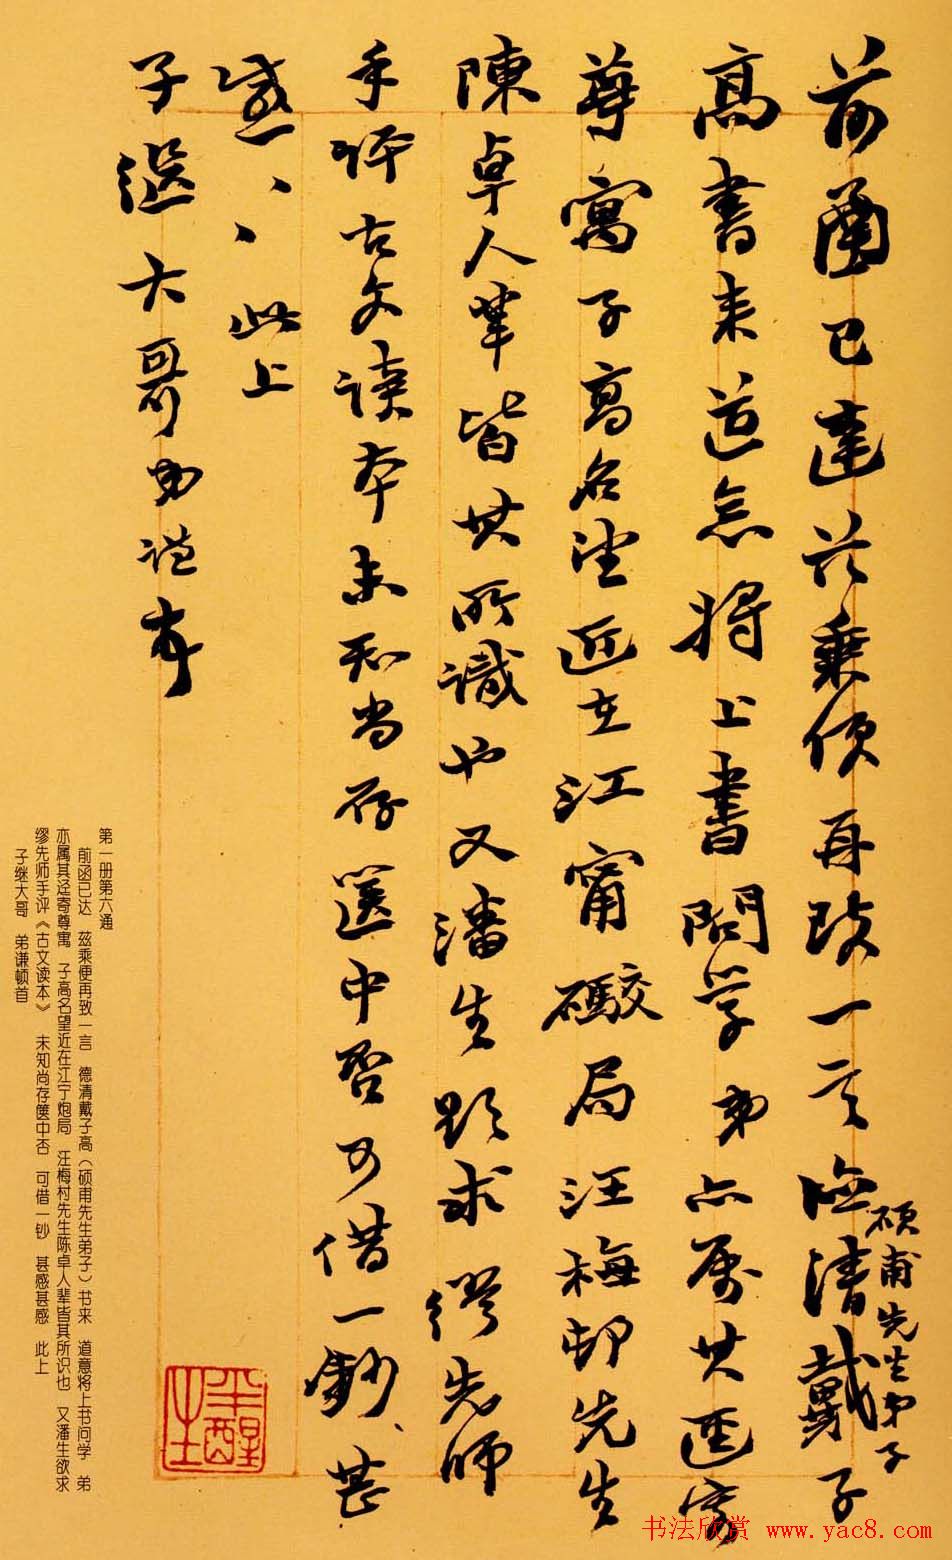 前函已達茲乘便再致一言德清戴子
碩甫先生弟子
高書來道意將上書問學弟亦属其迳寄
尊寓子高名望近在江甯礮局汪梅邨先生
陳卓人輩皆其所識也又潘生欲求繆先師
手评古文读本未知尚存箧中否可借一鈔、甚
感、、此上
子继大哥弟谦顿首
第一册第六通
前函已达　兹乘便再致一言　德清戴子高（硕甫先生弟子）书来　道意将上书问学　弟
亦属其迳寄尊寓　子高名望近在江宁炮局　汪梅村先生陈卓人辈皆其所识也　又潘生欲求
缪先师手评《古文读本》　未知尚存箧中否　可借一钞　甚感甚感　此上
子继大哥　弟谦顿首
半醒
书法欣赏 www.yac8.com